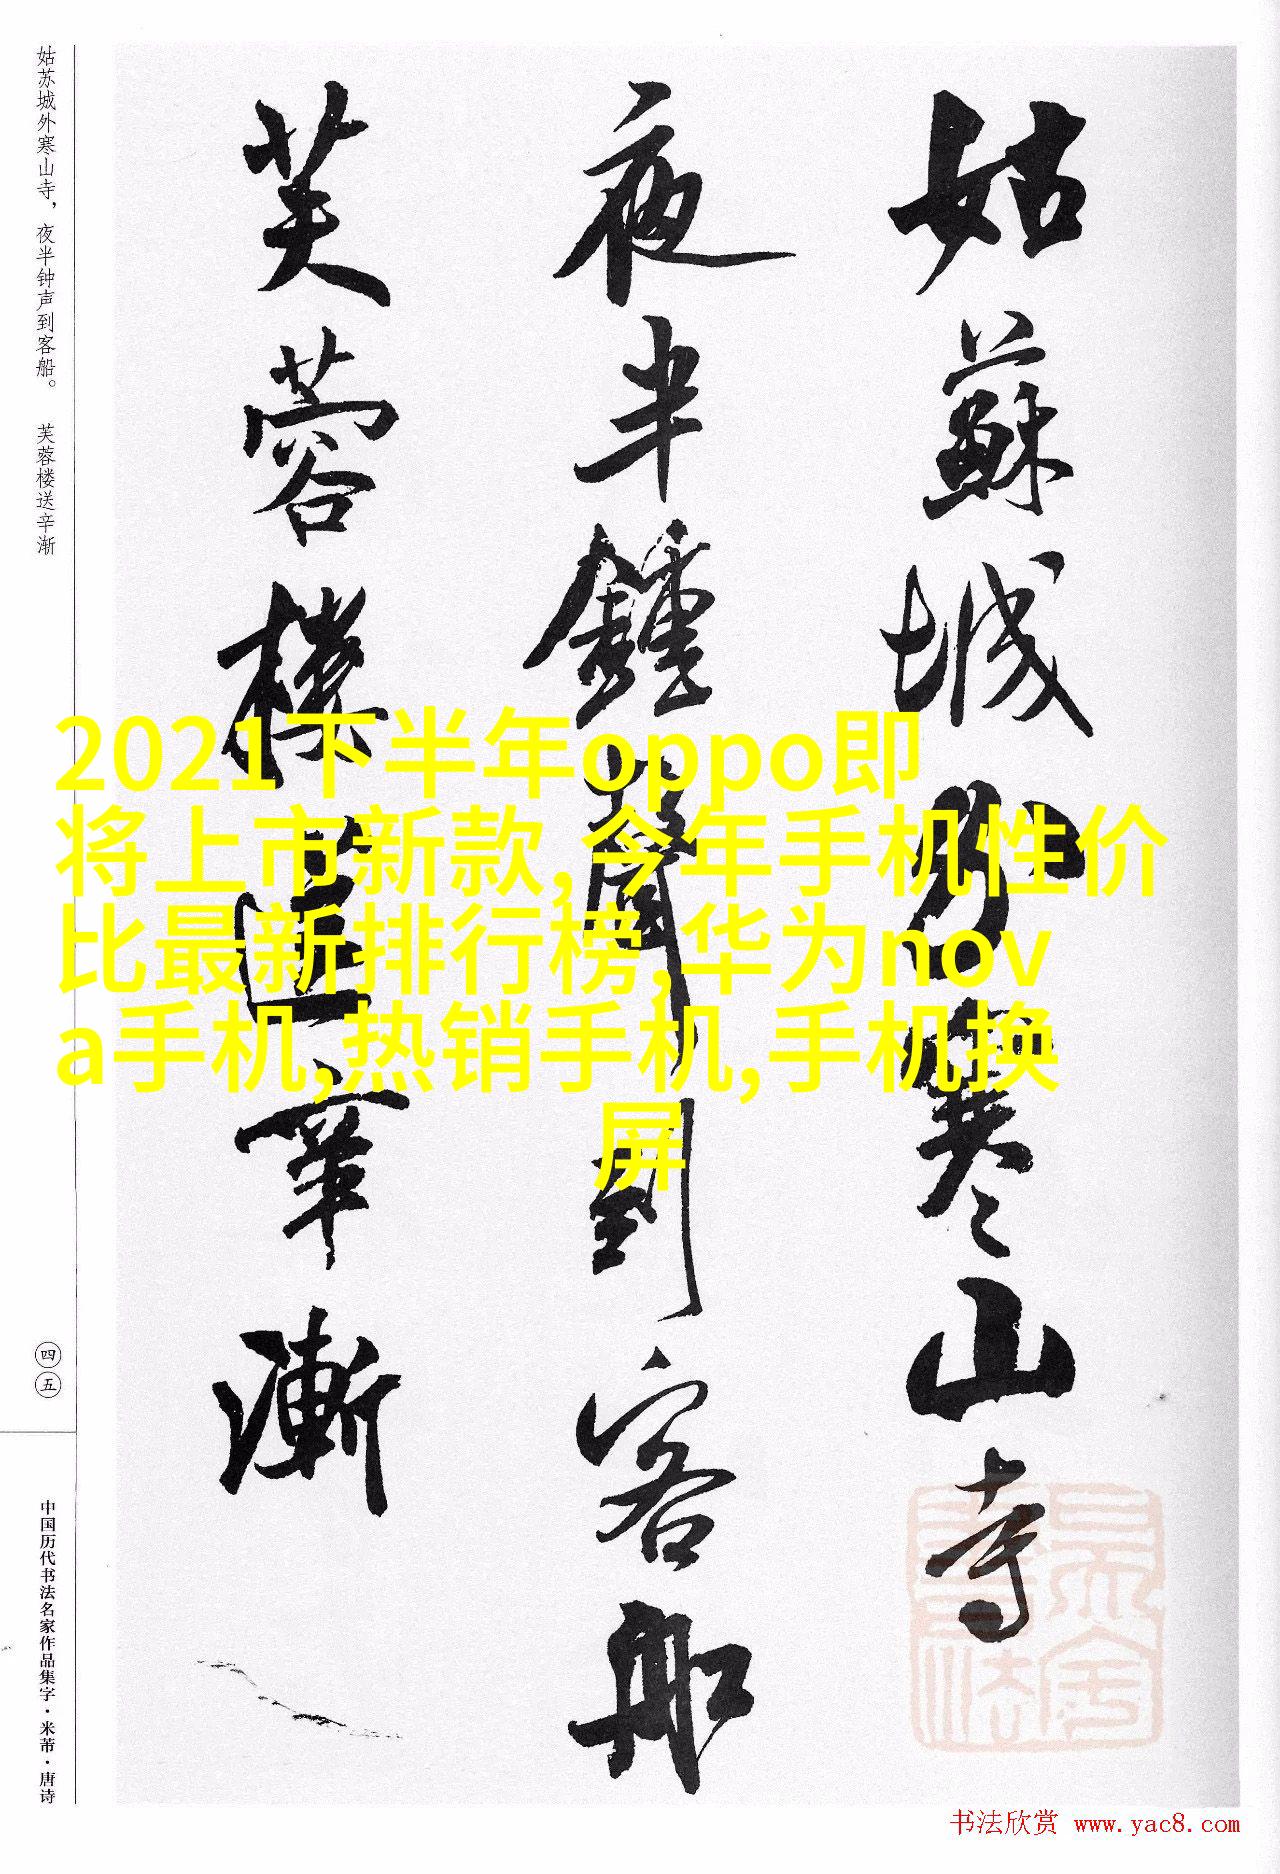 姑蘇城外寒山寺
夜半鍾聲到客船
芙蓉樓送辛漸
姑苏城外寒山寺，夜半钟声到客船。 芙蓉楼送辛渐
四五
中国历代书法名家作品集字·米芾·唐诗
2021下半年oppo即
将上市新款,今年手机性价
比最新排行榜,华为nov
a手机,热销手机,手机换
屏
书法欣赏 www.yac8.com